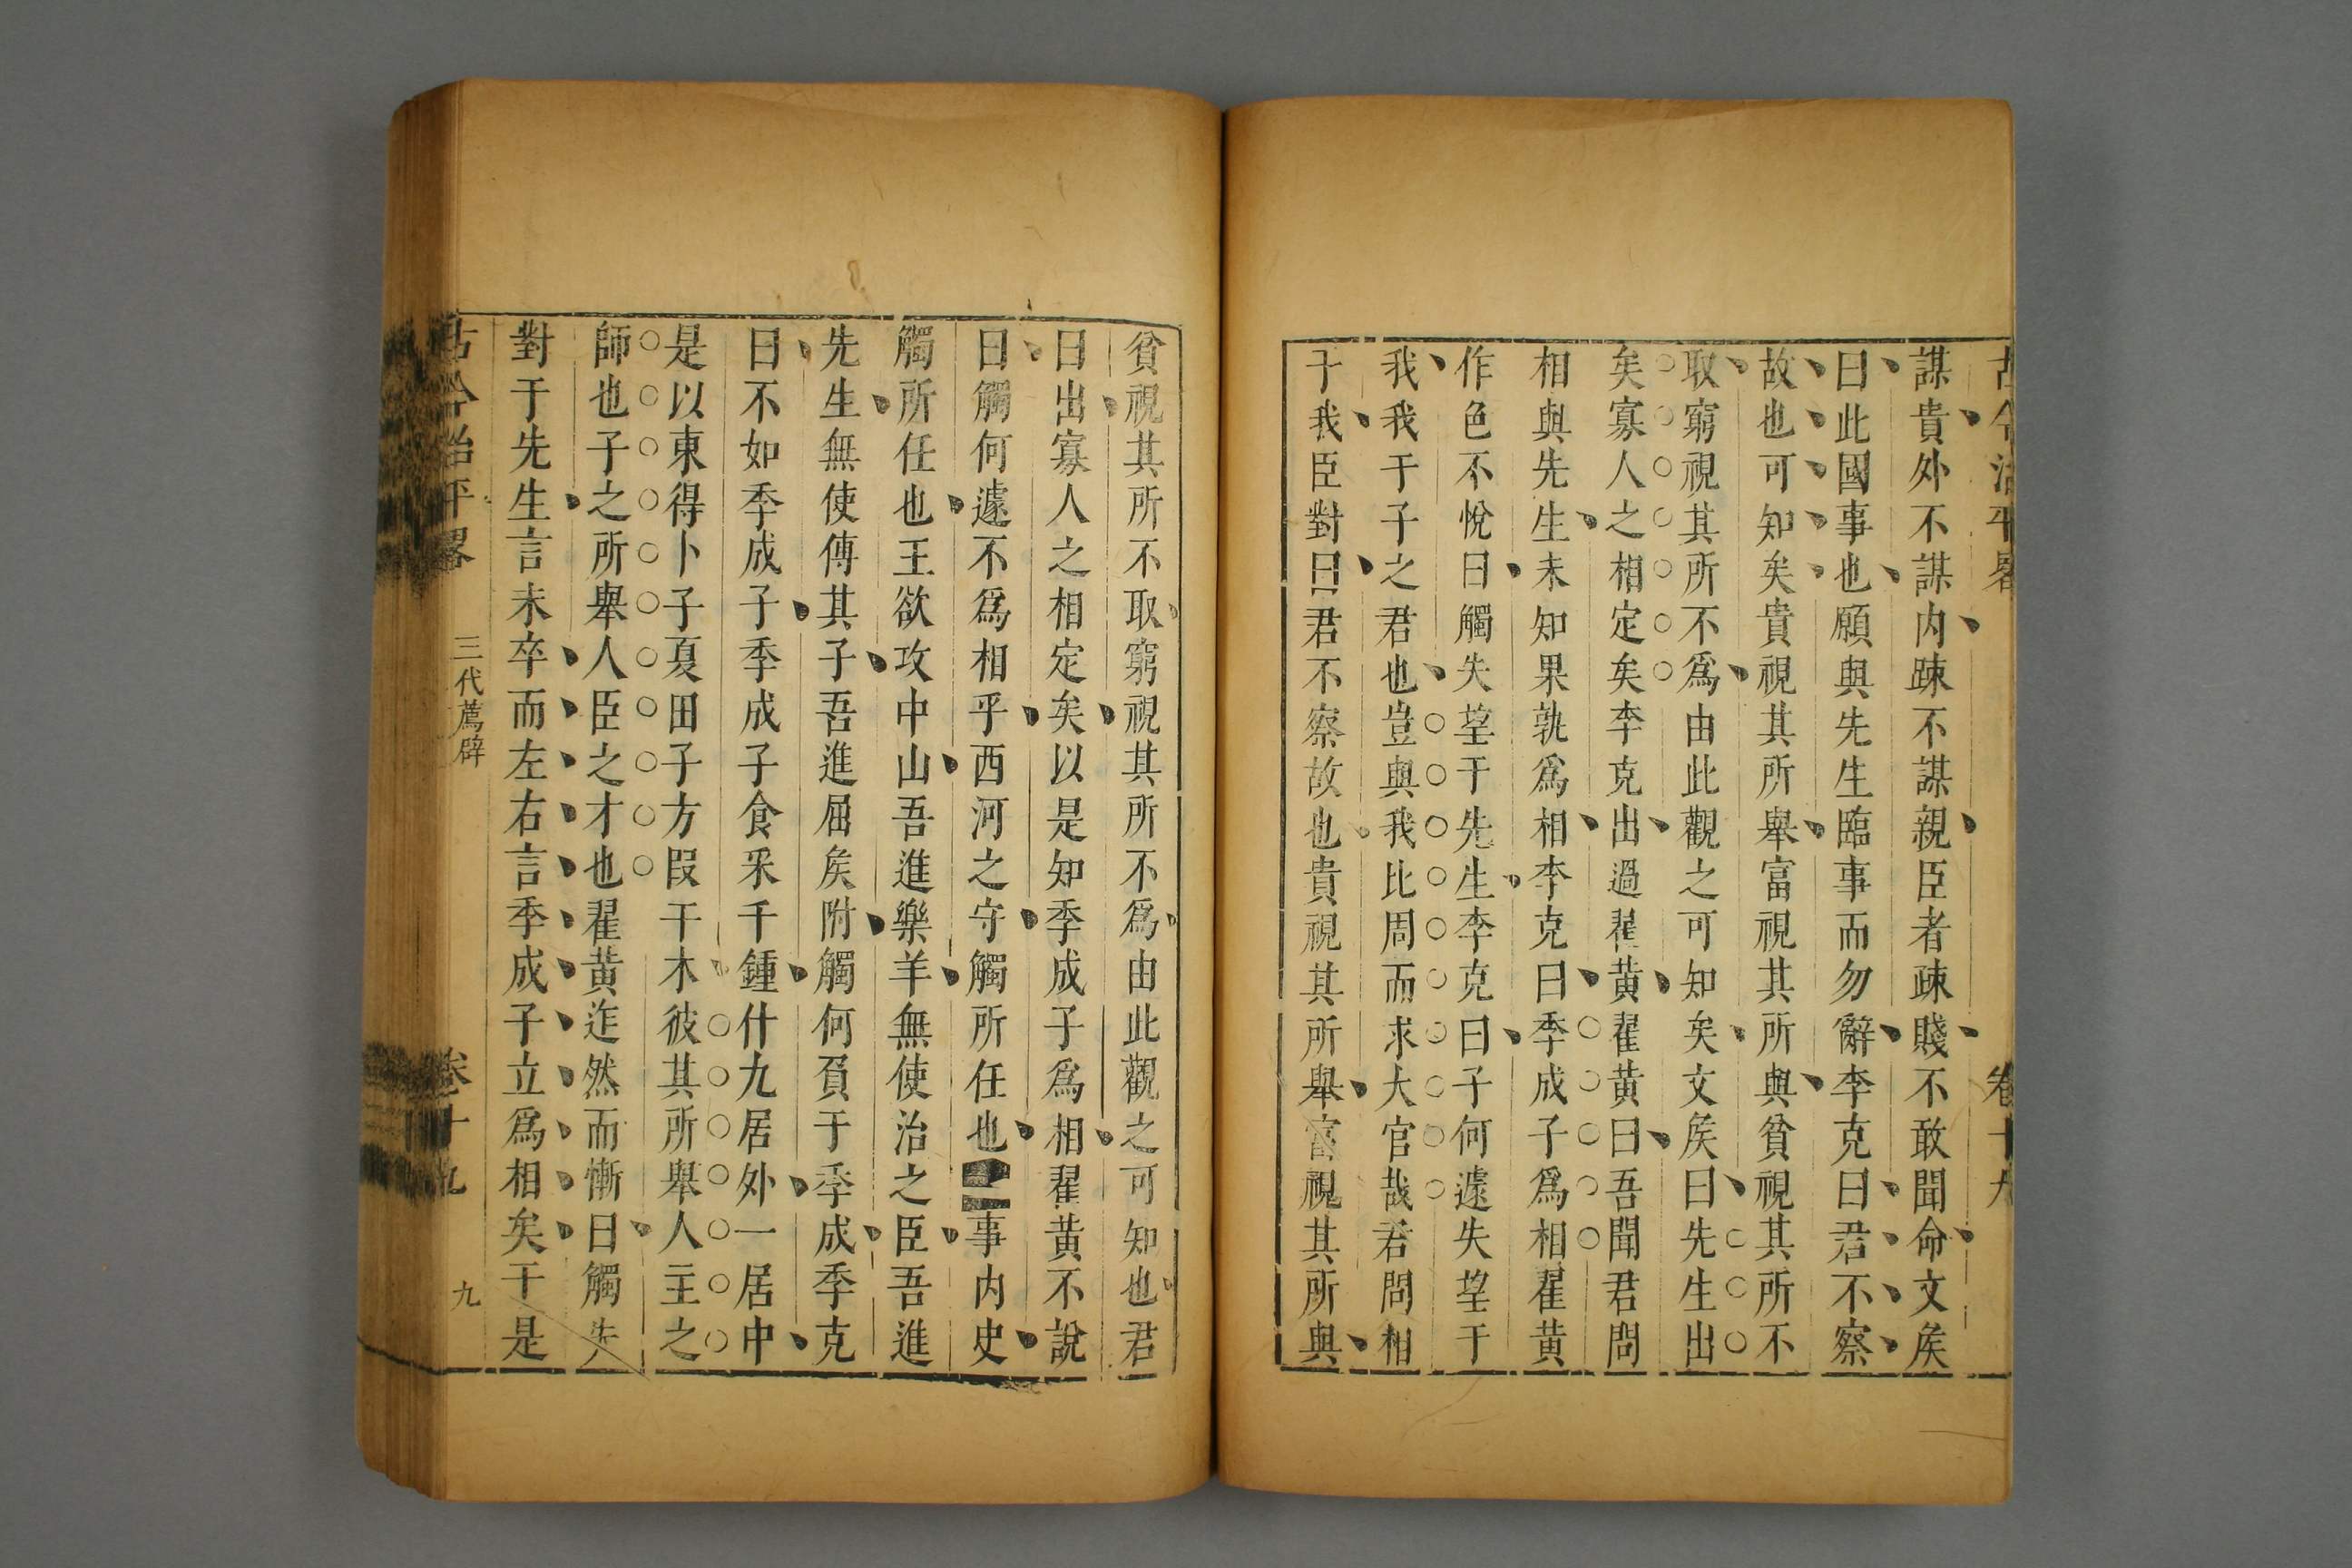 古今治平畧 卷十九
謀貴外不謀内踈不謀親臣者疎賤不敢聞命文矦
曰此國事也願與先生臨事而勿辭李克曰君不察
故也可知矣貴視其所舉富視其所與貧視其所不
取窮視其所不爲由此觀之可知矣文矦曰先生出
矣寡人之相定矣李克出過翟黄翟黄曰吾聞君問
相與先生未知果孰爲相李克曰季成子爲相翟黄
作色不悅曰觸失望于先生李克曰子何遽失望于
我我于子之君也豈與我比周而求大官哉君問相
于我臣對曰君不察故也貴視其所舉富視其所與
貧視其所不取窮視其所不爲由此觀之可知也君
曰出寡人之相定矣以是知季成子爲相翟黄不說
曰觸何遽不爲相乎西河之守觸所任也事内史
觸所任也王欲攻中山吾進樂羊無使治之臣吾進
先生無使傅其子吾進屈矦附觸何負于季成季克
曰不如季成子季成子食采千鍾什九居外一居中
是以東得卜子夏田子方段干木彼其所舉人主之
師也子之所舉人臣之才也翟黄迮然而慚曰觸失
對于先生言未卒而左右言季成子立爲相矣于是
古今治平畧 三代薦辟 卷十九 九